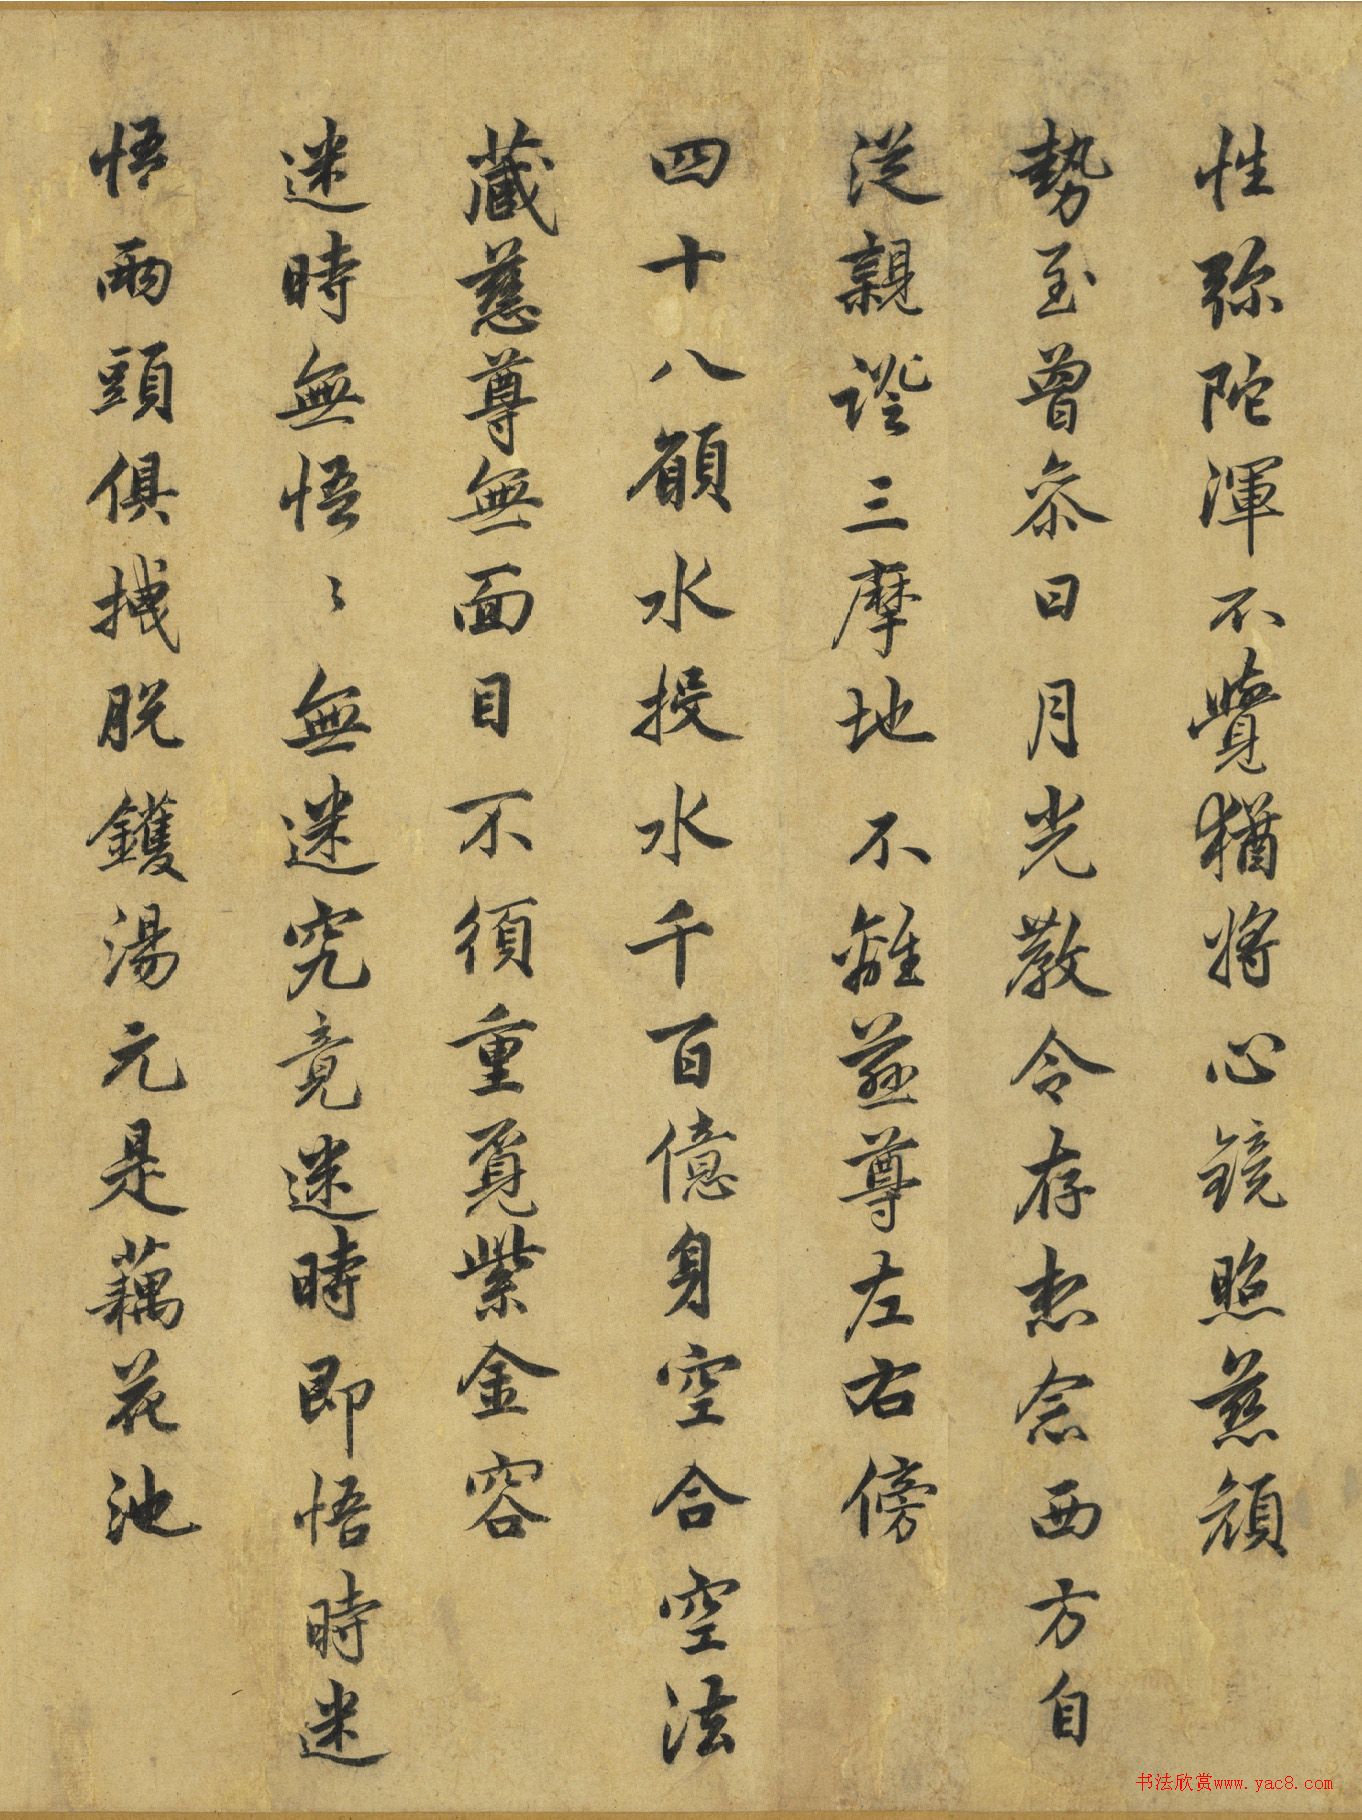 性弥陀渾不覺猶將心鏡照慈顏
勢至曾叅日月光教令存想念西方自
從親證三摩地不離慈尊左右傍
四十八願水投水千百億身空合空法
藏慈尊無面目不須重覓紫金容
迷時無悟〻無迷究竟迷時即悟時迷
悟兩頭俱拽脱鑊湯元是藕花池
书法欣赏www.yac8.com